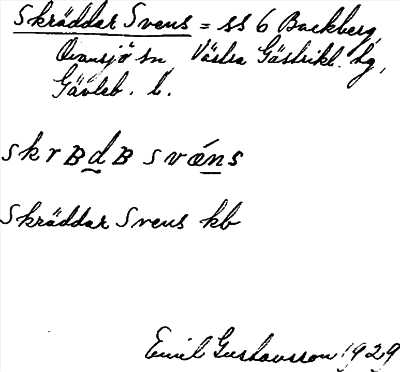 Skräddar Svens = ss 6 Backberg,
Ovansjö sn, Västra Gästrikl. hg,
Gävleb. l.
skrBdB svǽns
Skräddar Svens kb
Emil Gustavsson 1929